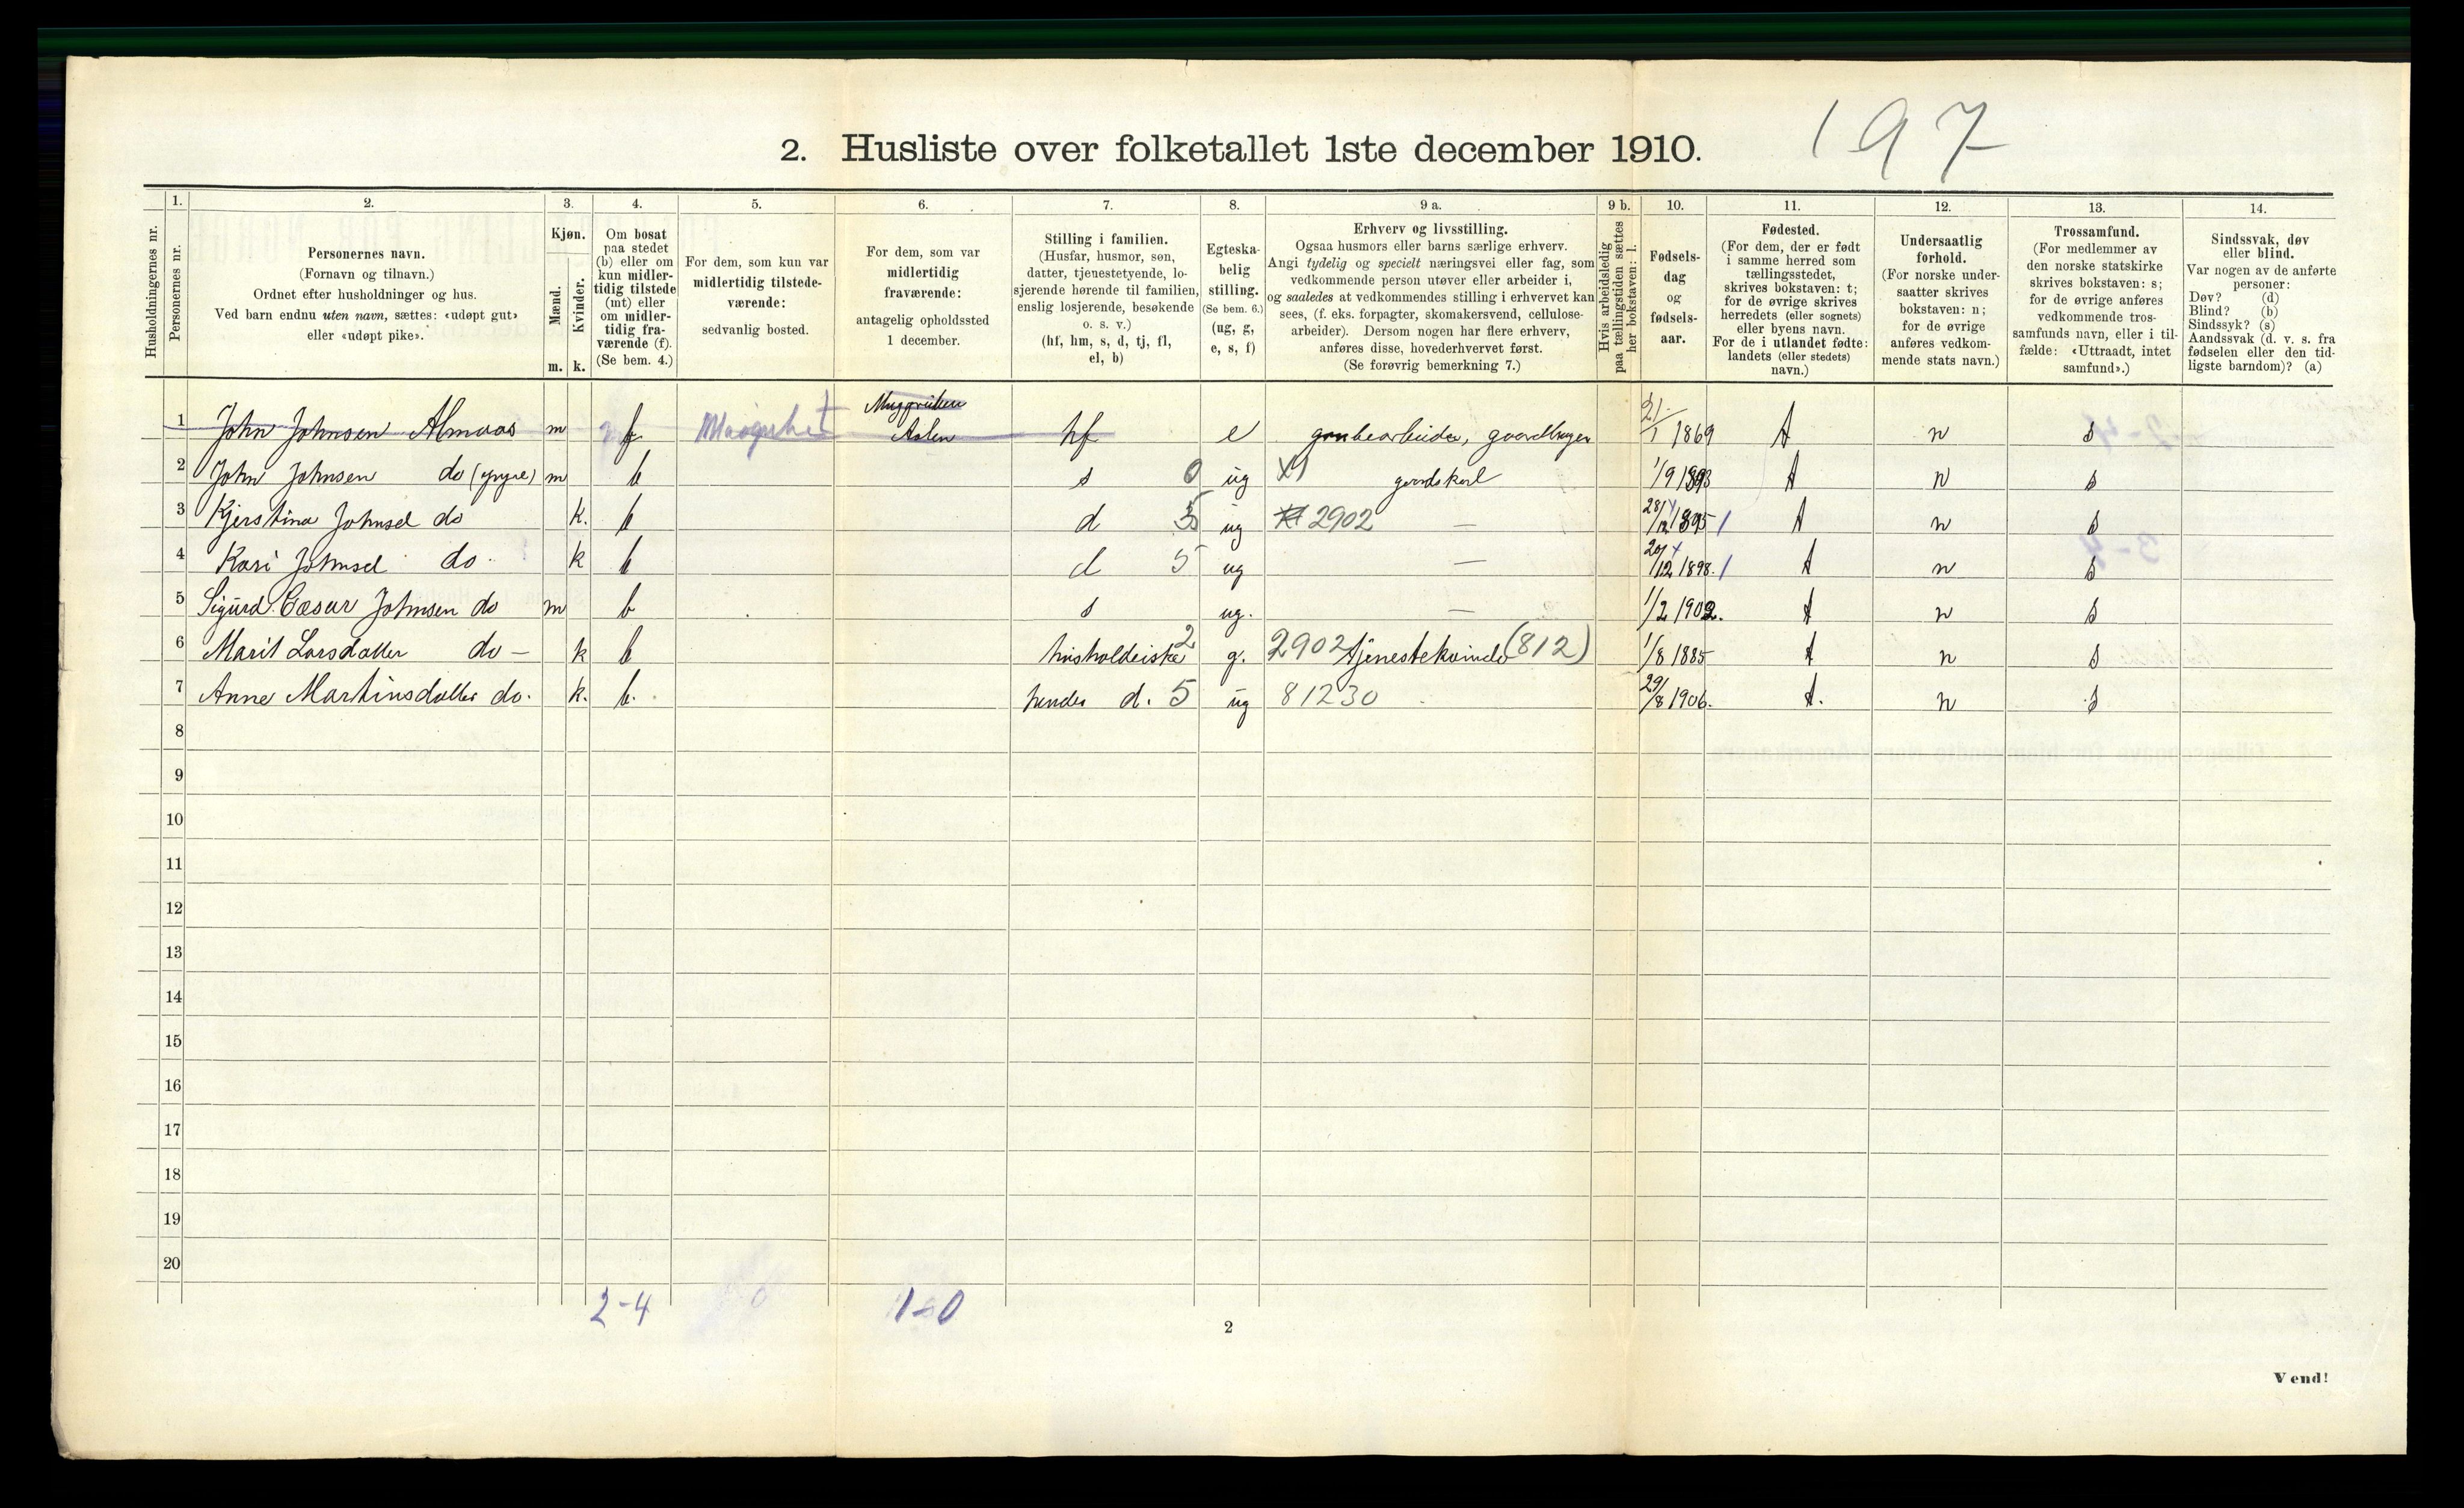 197
2. Husliste over folketallet 1ste december 1910.
Husholdningernes nr.
1.
Personernes nr.
2.
Personernes navn.
(Fornavn og tilnavn.)
Ordnet efter husholdninger og hus.
Ved barn endnu uten navn, sættes: «udøpt gut»
eller «udøpt pike».
3.
Kjøn.
Mænd.
Kvinder.
m. k.
4.
Om bosat
paa stedet
(b) eller om
kun midler-
tidig tilstede
(mt) eller
om midler-
tidig fra-
værende (f).
(Se bem. 4.)
5.
For dem, som kun var
midlertidig tilstede-
værende:
sedvanlig bosted.
6.
For dem, som var
midlertidig
fraværende:
antagelig opholdssted
1 december.
7.
Stilling i familien.
(Husfar, husmor, søn,
datter, tjenestetyende, lo-
sjerende hørende til familien,
enslig losjerende, besøkende
o. s. v.)
(hf, hm, s, d, tj, fl,
el, b)
8.
Egteska-
belig
stilling.
(Se bem. 6.)
(ug, g,
e, s, f)
9 a.
Erhverv og livsstilling.
Ogsaa husmors eller barns særlige erhverv.
Angi tydelig og specielt næringsvei eller fag, som
vedkommende person utøver eller arbeider i,
og saaledes at vedkommendes stilling i erhvervet kan
sees, (f. eks. forpagter, skomakersvend, cellulose-
arbeider). Dersom nogen har flere erhverv,
anføres disse, hovederhvervet først.
(Se forøvrig bemerkning 7.)
9 b.
Hvis arbeidsledig
paa tællingstiden sættes
her bokstaven: l.
10.
Fødsels-
dag
og
fødsels-
aar.
11.
Fødested.
(For dem, der er født
i samme herred som
tællingsstedet,
skrives bokstaven: t;
for de øvrige skrives
herredets (eller sognets)
eller byens navn.
For de i utlandet fødte:
landets (eller stedets)
navn.)
12.
Undersaatlig
forhold.
(For norske under-
saatter skrives
bokstaven: n;
for de øvrige
anføres vedkom-
mende stats navn.)
13.
Trossamfund.
(For medlemmer av
den norske statskirke
skrives bokstaven: s;
for de øvrige anføres
vedkommende tros-
samfunds navn, eller i til-
fælde: «Uttraadt, intet
samfund».)
14.
Sindssvak, døv
eller blind.
Var nogen av de anførte
personer:
Døv? (d)
Blind? (b)
Sindssyk? (s)
Aandssvak (d. v. s. fra
fødselen eller den tid-
ligste barndom)? (a)
1 John Johnsen Almaas m f Aalen hf e grubearbeider, gaardbruger 21/1 1869 t n s
2 John Johnsen do (yngre) m b s 0 ug X1 gaardskarl 1/9 1893 t n s
3 Kjerstina Johnsd do k. b d 5 ug 2902 — 28/12 1895 t n s
4 Kari Johnsd do. k b d 5 ug — 20/12 1898. t n s
5 Sigurd Cæsar Johnsen do m b s ug. — 1/2 1902. t n s
6 Marit Larsdatter do — k b husholderske 2 g. 2902 tjenestekvinde (812) 1/8 1885 t n s
7 Anne Martinsdatter do. k. b. hendes d. 5 ug 81230 29/8 1906. t. n s
8
9
10
11
12
13
14
15
16
17
18
19
20
2-4 1-0
2
Vend!